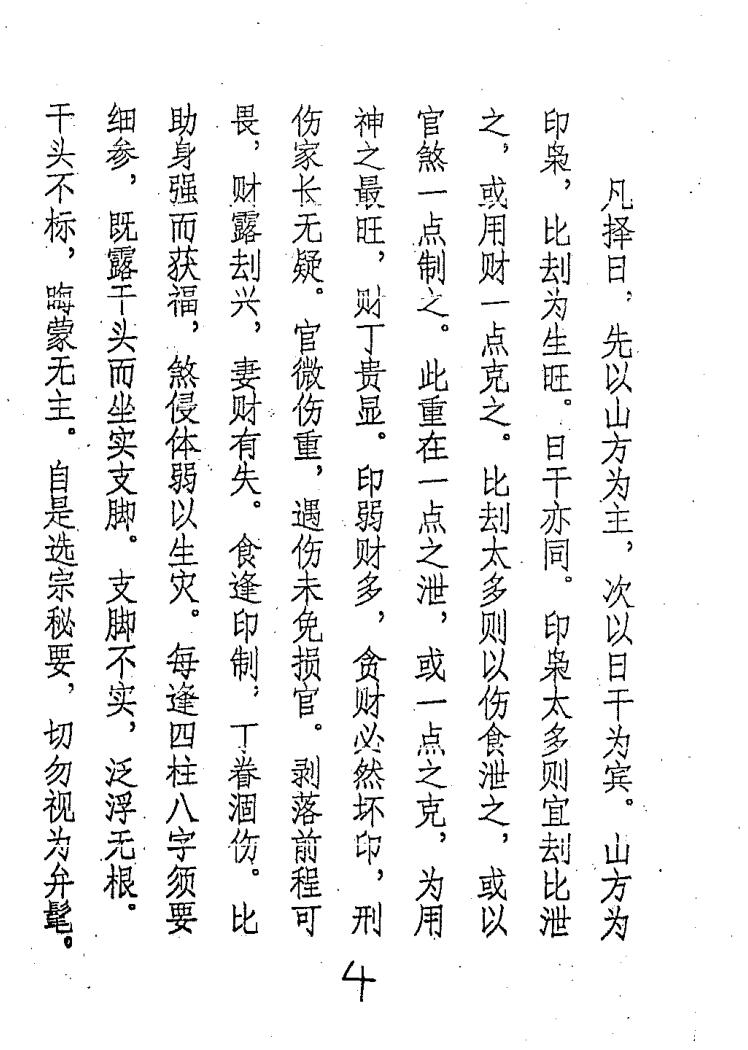 凡择日，先以山方为主，次以日干为宾。山方为
印枭，比刦为生旺。日干亦同。印枭太多则宜刦比泄
之，或用财一点克之。比刦太多则以伤食泄之，或以
官煞一点制之。此重在一点之泄，或一点之克，为用
神之最旺，财丁贵显。印弱财多，贪财必然坏印，刑
伤家长无疑。官微伤重，遇伤未免损官。剥落前程可
畏，财露刦兴，妻财有失。食逢印制，丁眷涸伤。比
助身强而获福，煞侵体弱以生灾。每逢四柱八字须要
细参，既露干头而坐实支脚。支脚不实，泛浮无根。
干头不标，晦蒙无主。自是选宗秘要，切勿视为弁髦。
4